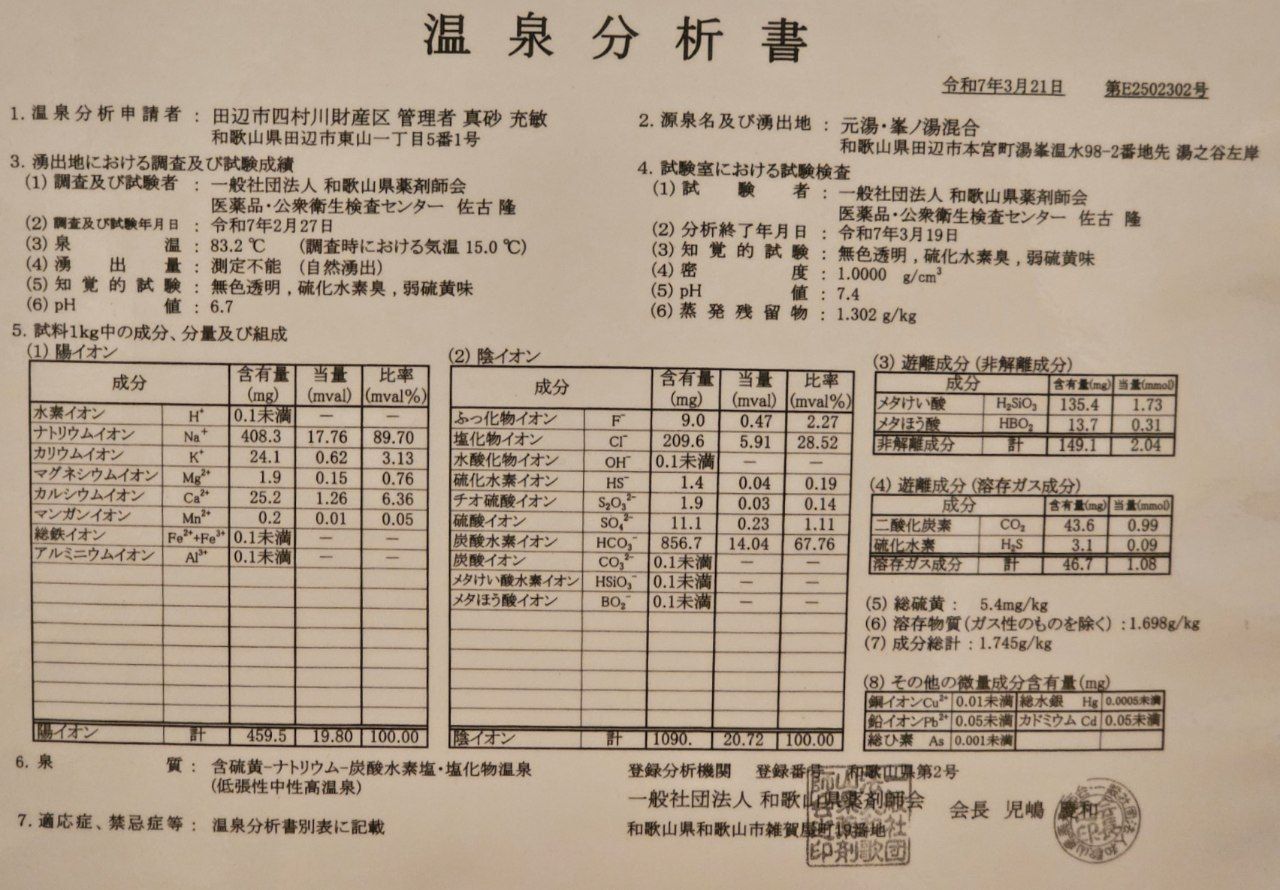 温泉分析書
令和7年3月21日　第E2502302号
1. 温泉分析申請者 : 田辺市四村川財産区 管理者 真砂 充敏
和歌山県田辺市東山一丁目5番1号
2. 源泉名及び湧出地 : 元湯・峯ノ湯混合
和歌山県田辺市本宮町湯峯温水98-2番地先 湯之谷左岸
3. 湧出地における調査及び試験成績
(1) 調査及び試験者 : 一般社団法人 和歌山県薬剤師会
医薬品・公衆衛生検査センター 佐古 隆
(2) 調査及び試験年月日 : 令和7年2月27日
(3) 泉温 : 83.2 ℃ (調査時における気温 15.0 ℃)
(4) 湧出量 : 測定不能 (自然湧出)
(5) 知覚的試験 : 無色透明 , 硫化水素臭 , 弱硫黄味
(6) pH値 : 6.7
4. 試験室における試験検査
(1) 試験者 : 一般社団法人 和歌山県薬剤師会
医薬品・公衆衛生検査センター 佐古 隆
(2) 分析終了年月日 : 令和7年3月19日
(3) 知覚的試験 : 無色透明 , 硫化水素臭 , 弱硫黄味
(4) 密度 : 1.0000 g/cm³
(5) pH値 : 7.4
(6) 蒸発残留物 : 1.302 g/kg
5. 試料1kg中の成分、分量及び組成
(1) 陽イオン
成分 含有量(mg) 当量(mval) 比率(mval%)
水素イオン H⁺ 0.1未満 － －
ナトリウムイオン Na⁺ 408.3 17.76 89.70
カリウムイオン K⁺ 24.1 0.62 3.13
マグネシウムイオン Mg²⁺ 1.9 0.15 0.76
カルシウムイオン Ca²⁺ 25.2 1.26 6.36
マンガンイオン Mn²⁺ 0.2 0.01 0.05
総鉄イオン Fe²⁺+Fe³⁺ 0.1未満 － －
アルミニウムイオン Al³⁺ 0.1未満 － －
陽イオン 計 459.5 19.80 100.00
(2) 陰イオン
成分 含有量(mg) 当量(mval) 比率(mval%)
ふっ化物イオン F⁻ 9.0 0.47 2.27
塩化物イオン Cl⁻ 209.6 5.91 28.52
水酸化物イオン OH⁻ 0.1未満 － －
硫化水素イオン HS⁻ 1.4 0.04 0.19
チオ硫酸イオン S₂O₃²⁻ 1.9 0.03 0.14
硫酸イオン SO₄²⁻ 11.1 0.23 1.11
炭酸水素イオン HCO₃⁻ 856.7 14.04 67.76
炭酸イオン CO₃²⁻ 0.1未満 － －
メタけい酸水素イオン HSiO₃⁻ 0.1未満 － －
メタほう酸イオン BO₂⁻ 0.1未満 － －
陰イオン 計 1090. 20.72 100.00
(3) 遊離成分 (非解離成分)
成分 含有量(mg) 当量(mmol)
メタけい酸 H₂SiO₃ 135.4 1.73
メタほう酸 HBO₂ 13.7 0.31
非解離成分 計 149.1 2.04
(4) 遊離成分 (溶存ガス成分)
成分 含有量(mg) 当量(mmol)
二酸化炭素 CO₂ 43.6 0.99
硫化水素 H₂S 3.1 0.09
溶存ガス成分 計 46.7 1.08
(5) 総硫黄 : 5.4mg/kg
(6) 溶存物質 (ガス性のものを除く) : 1.698g/kg
(7) 成分総計 : 1.745g/kg
(8) その他の微量成分含有量(mg)
銅イオンCu²⁺ 0.01未満 総水銀 Hg 0.0005未満
鉛イオンPb²⁺ 0.05未満 カドミウム Cd 0.05未満
総ひ素 As 0.001未満
6. 泉質 : 含硫黄-ナトリウム-炭酸水素塩・塩化物温泉
(低張性中性高温泉)
7. 適応症、禁忌症等 : 温泉分析書別表に記載
登録分析機関 登録番号 和歌山県第2号
一般社団法人 和歌山県薬剤師会 会長 児嶋 慶和
和歌山県和歌山市雑賀屋町19番地